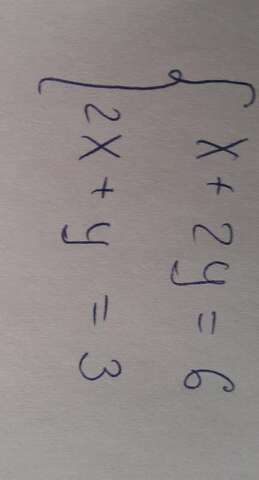 x + 2y = 6
2x + y = 3